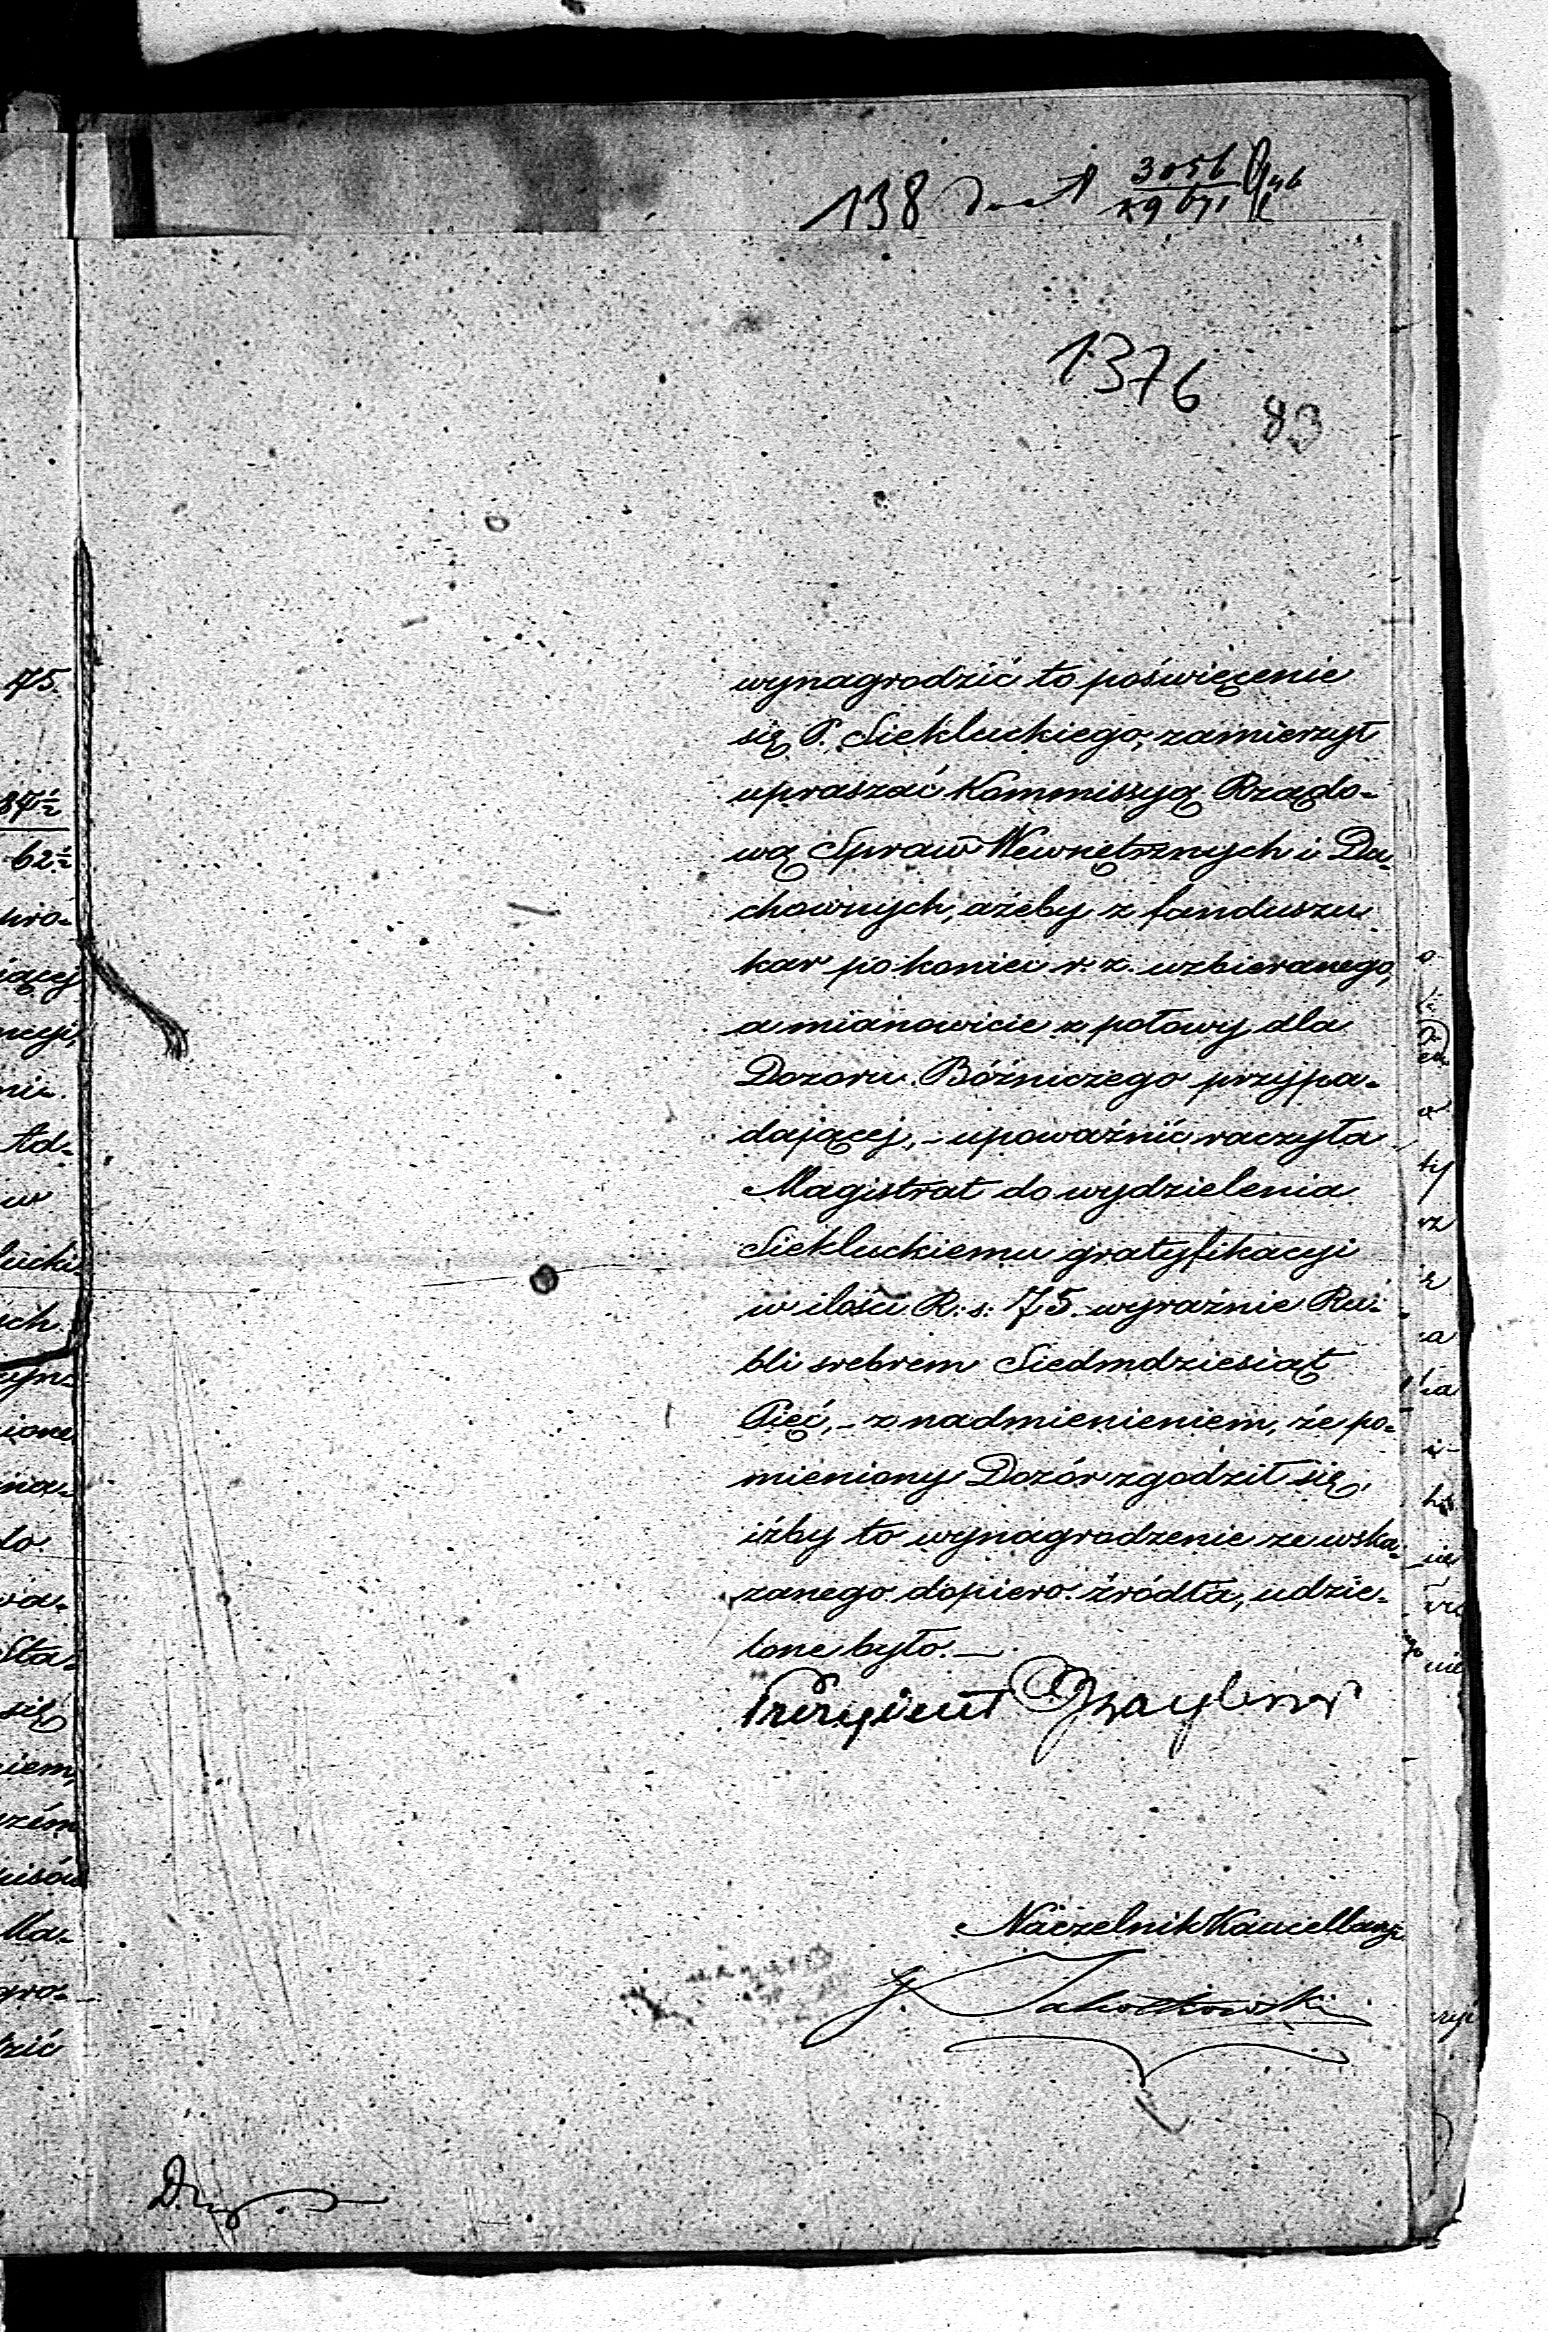 138
3056
1376
83
wynagrodzić to poświęcenie
się P. Siekluckiego, zamierzył
upraszać Kommissyą Rządo-
wą Spraw Wewnętrznych i Du-
chownych, ażeby z funduszu
kar po koniec r. z. wzbieranego,
a mianowicie z połowy dla
Dozoru Bóźniczego przypa-
dającej, - upoważnić raczyła
Magistrat do wydzielenia
Siekluckiemu gratyfikacyi
w ilości R. s. 75. wyraźnie Ru-
bli srebrem Siedmdziesiąt
Pięć, - z nadmienieniem, że po-
mieniony Dozór zgodził się,
iżby to wynagrodzenie ze wska-
zanego dopiero źródła, udzie-
lone było. -
Prezydent
Naczelnik Kancellaryi
J.
75.
87½
62½
iącej
Ad-
w
Sta-
się
Ma-